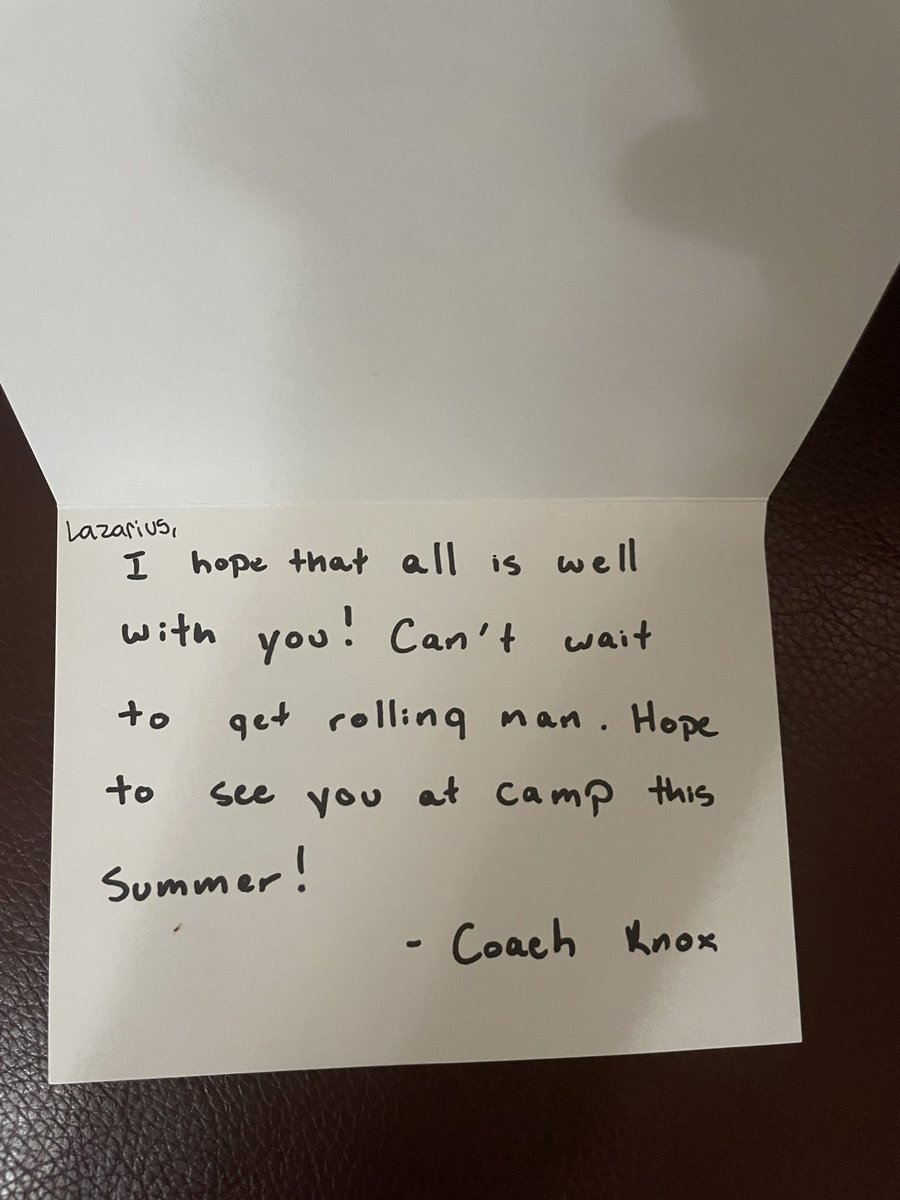 Lazarius,
I hope that all is well
with you! Can't wait
to get rolling man. Hope
to see you at camp this
Summer!
- Coach Knox